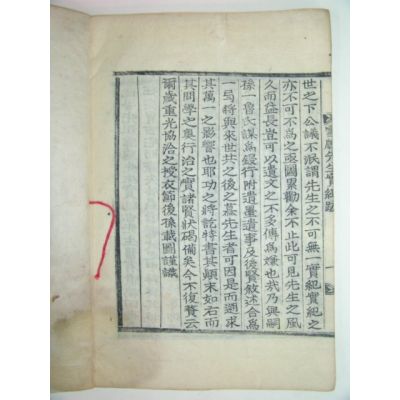 世之下公議不泯謂先生之不可無一實紀實紀之
亦不可不爲之亟圖累勸余不止此可見先生之風
久而益長豈可以遺文之不多傳爲嫌也哉乃與嗣
孫一魯氏謀爲鋟行附遺墨遺事及後賢敘述合爲
一弓將與來世共之後之慕先生者可因是而遡求
其萬一之影響也耶功之將訖特書其顚末如右而
其問學之集行治之實諸賢狀碣備矣今不復贅云
爾歲重光協洽之授衣節後孫載圖謹識
先生實紀跋
一